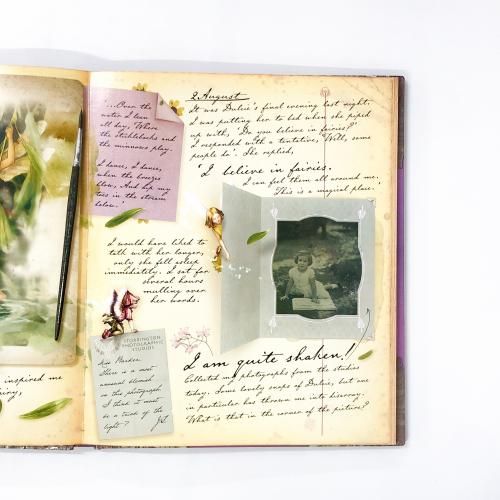 inspired me
'...Over the
water I lean
all day, Where
the Sticklebacks and
the minnows play.
I dance, I dance,
when the breezes
blow, And dip my
toes in the stream
below.'
2 August
It was Dulcie's final evening last night.
I was putting her to bed when she piped
up with, 'Do you believe in fairies?'
I responded with a tentative, 'Well, some
people do'. She replied,
I believe in fairies.
I can feel them all around me.
This is a magical place.
I would have liked to
talk with her longer,
only she fell asleep
immediately. I sat for
several hours
mulling over
her words.
TORRINGTON
PHOTOGRAPHIC
STUDIOS
Miss
There is a most
unusual blemish
on this photograph.
I think it must
be a trick of the
light?
I am quite shaken!
Collected my photographs from the studios
today. Some lovely snaps of Dulcie, but one
in particular has thrown me into disarray.
What is that in the corner of the picture?